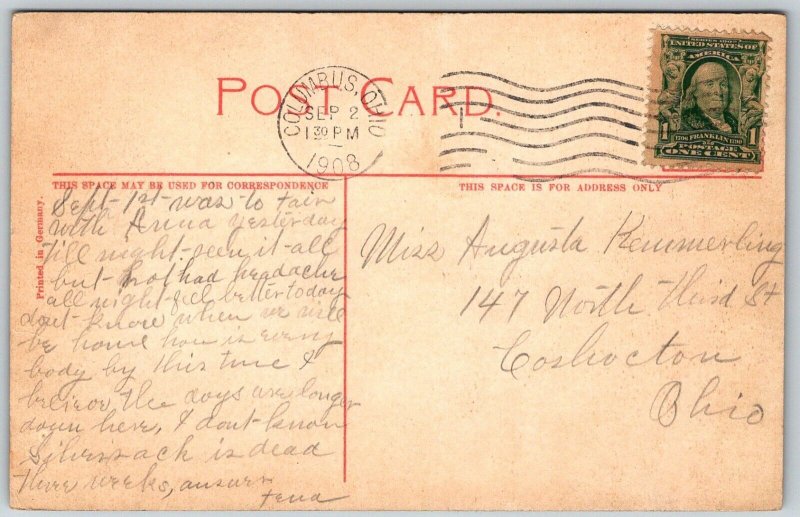 POST CARD.
COLUMBUS, OHIO
SEP 2
1 30 PM
1908
SERIES 1902
UNITED STATES OF
AMERICA
1706 FRANKLIN 1790
1 POSTAGE 1
ONE CENT
THIS SPACE MAY BE USED FOR CORRESPONDENCE
THIS SPACE IS FOR ADDRESS ONLY
Printed in Germany.
Sept-1st-was to Fair
with Anna yesterday
till night-seen it-all
but had headache
all night-feel better today
dont-know when we will
be home how is every
body by this time I
believe the days are longer
down here, I dont-know
is dead
three weeks, answer
Miss Augusta Kemmerling
147 North Third St
Coshocton
Ohio